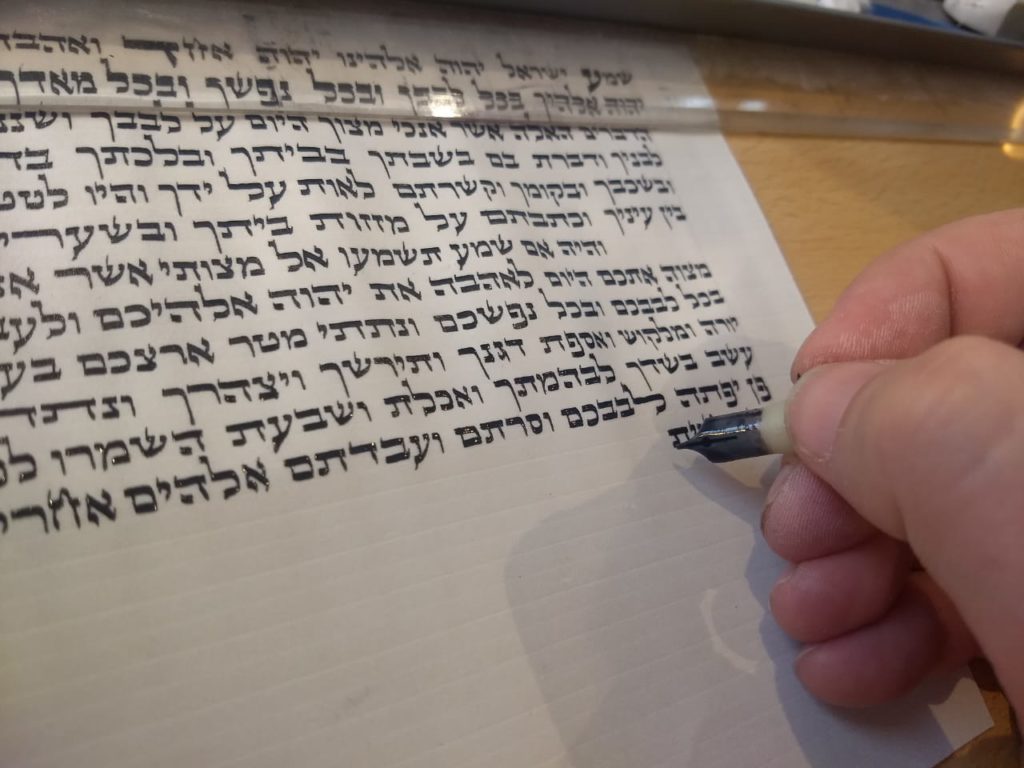 שמע ישראל יהוה אלהינו יהוה אחד
יהוה אלהיך בכל לבבך ובכל נפשך ובכל מאדך
הדברים האלה אשר אנכי מצוך היום על לבבך
לבניך ודברת בם בשבתך בביתך ובלכתך
ובשכבך ובקומך וקשרתם לאות על ידך והיו
בין עיניך וכתבתם על מזזות ביתך
והיה אם שמע תשמעו אל מצותי אשר
מצוה אתכם היום לאהבה את יהוה אלהיכם
בכל לבבכם ובכל נפשכם ונתתי מטר ארצכם
יורה ומלקוש ואספת דגנך ותירשך ויצהרך
עשב בשדך לבהמתך ואכלת ושבעת השמרו
פן יפתה לבבכם וסרתם ועבדתם אלהים